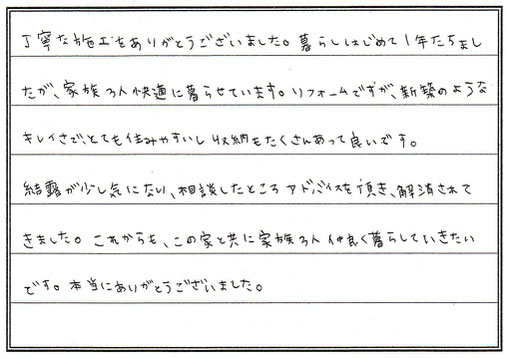 丁寧な施工をありがとうございました。暮らしはじめて1年たちまし
たが、家族3人快適に暮らせています。リフォームですが、新築のような
キレイさで、とても住みやすいし収納もたくさんあって良いです。
結露が少し気にない、相談したところアドバイスを頂き、解消されて
きました。これからも、この家と共に家族3人仲良く暮らしていきたい
です。本当にありがとうございました。